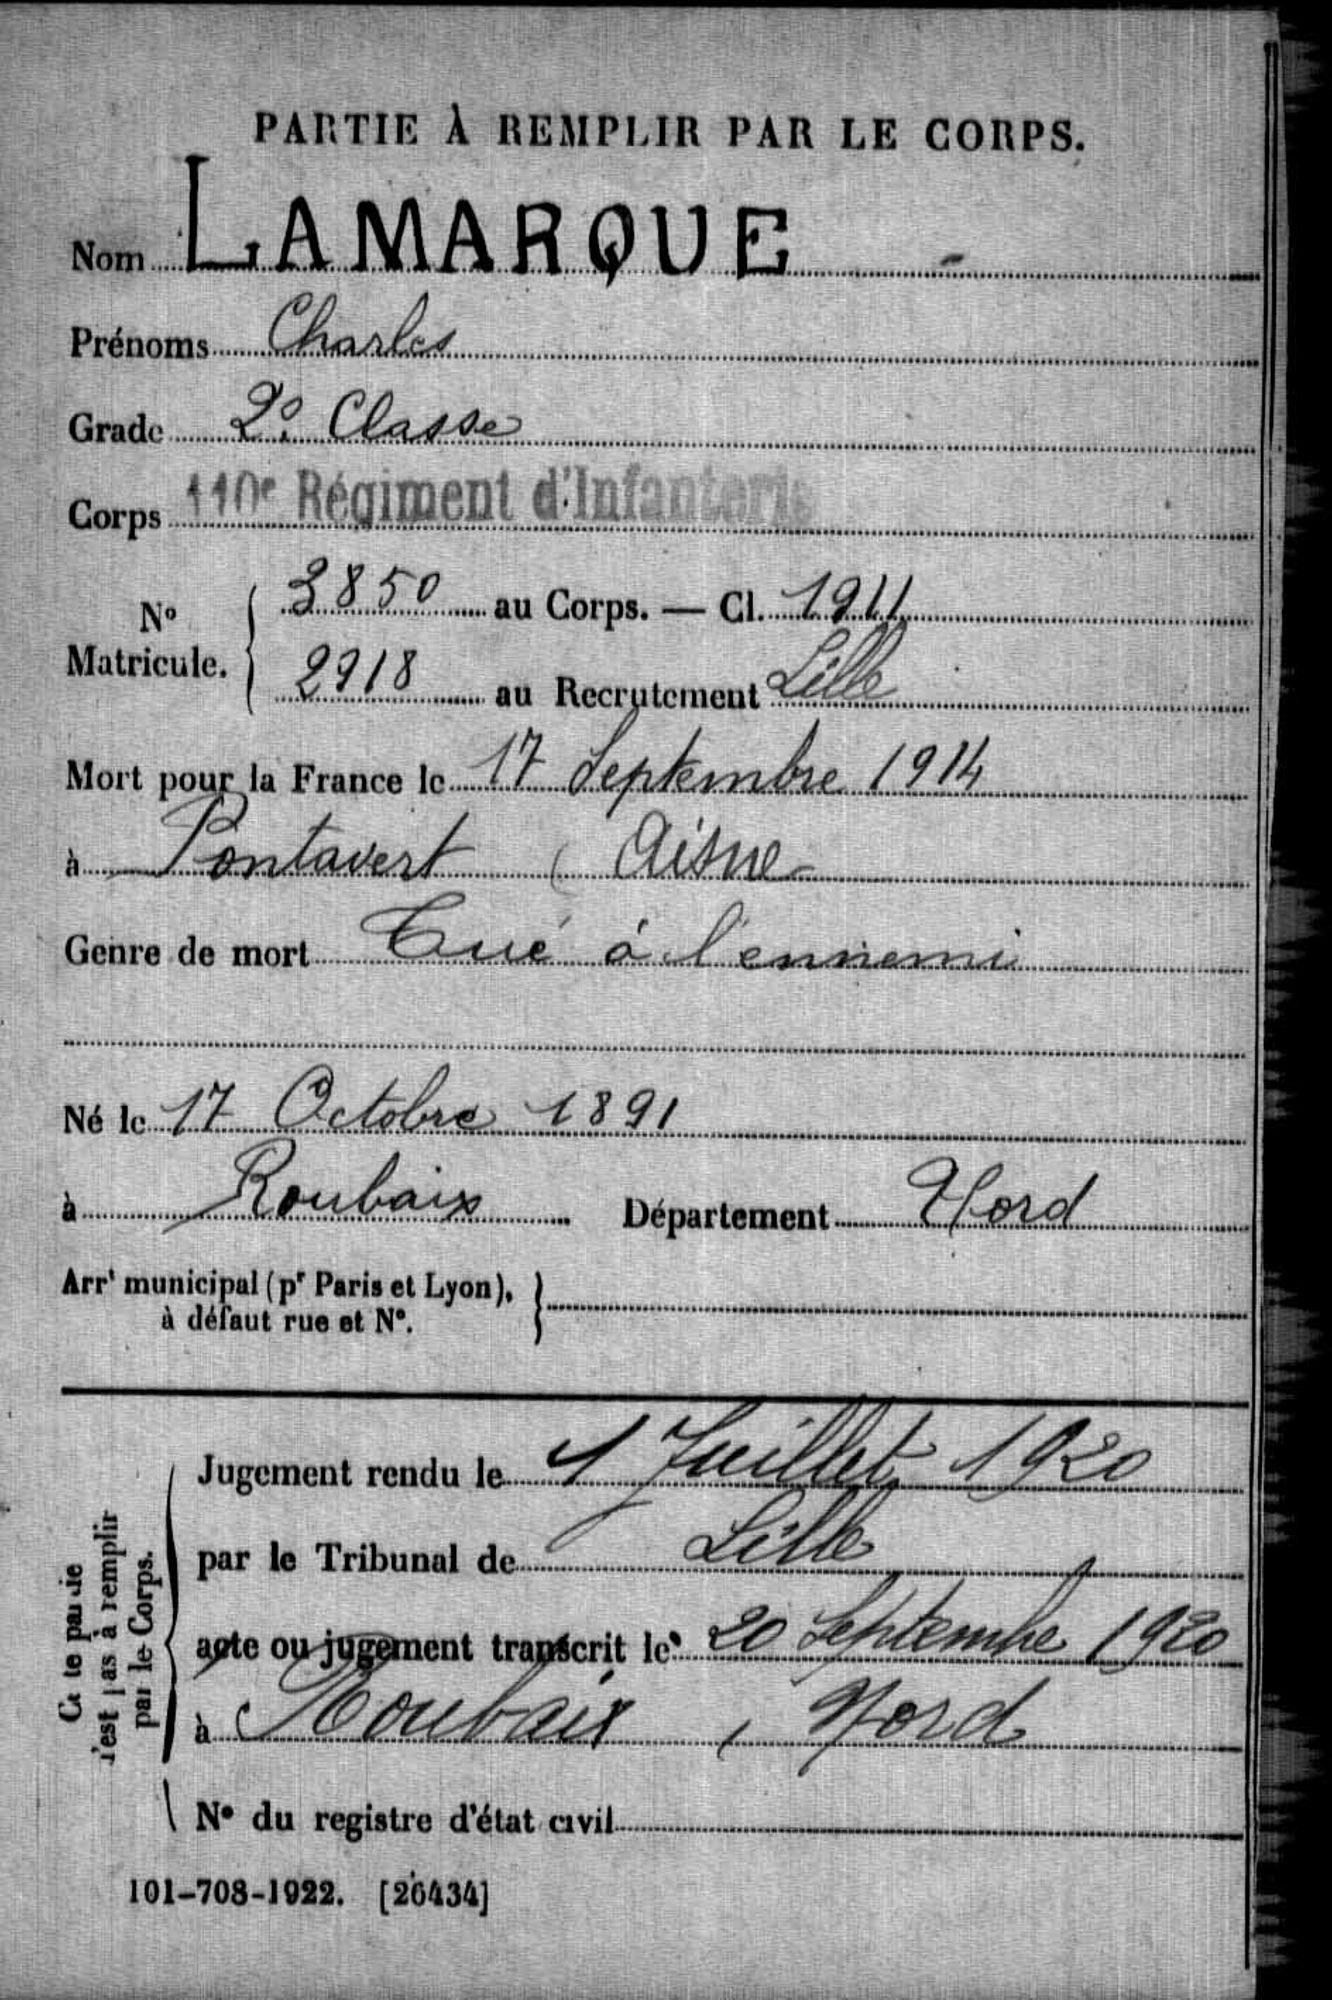 PARTIE À REMPLIR PAR LE CORPS.
Nom LAMARQUE
Prénoms Charles
Grade 2e Classe
Corps 110e Régiment d'Infanterie
No Matricule. 3850 au Corps. — Cl. 1911
2918 au Recrutement Lille
Mort pour la France le 17 Septembre 1914
à Pontavert ( Aisne
Genre de mort Tué à l'ennemi
Né le 17 Octobre 1891
à Roubaix Département Nord
Arrt municipal (pr Paris et Lyon),
à défaut rue et No.
Cette partie
n'est pas à remplir
par le Corps.
Jugement rendu le 1 Juillet 1920
par le Tribunal de Lille
acte ou jugement transcrit le 20 Septembre 1920
à Roubaix, Nord
No du registre d'état civil
101-708-1922. [26434]